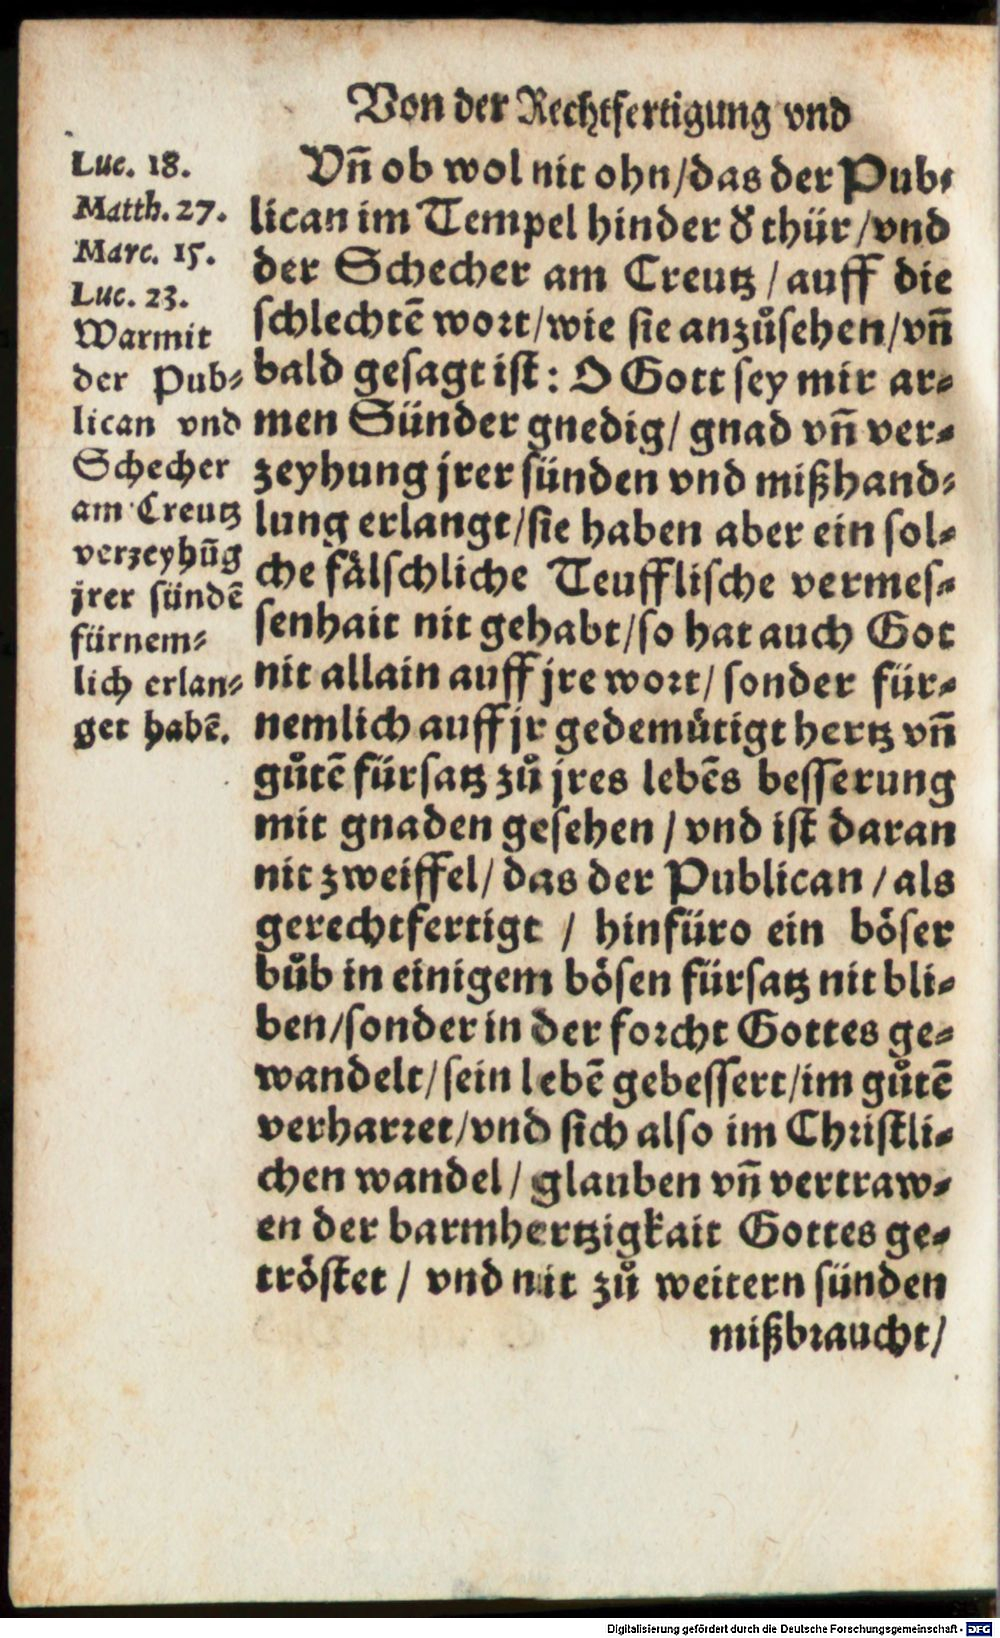 Von der Rechtfertigung vnd
Luc. 18.
Matth. 27.
Marc. 15.
Luc. 23.
Warmit
der Pub⸗
lican vnd
Schecher
am Creutz
verzeyhūg
jrer sündē
fürnem⸗
lich erlan⸗
get habē.
Vñ ob wol nit ohn/das der Pub⸗
lican im Tempel hinder d̕ thür/vnd
der Schecher am Creutz/auff die
schlechtē wort/wie sie anzůsehen/vñ
bald gesagt ist: O Gott sey mir ar⸗
men Sünder gnedig/gnad vñ ver⸗
zeyhung jrer sünden vnd mißhand⸗
lung erlangt/sie haben aber ein sol⸗
che fälschliche Teufflische vermes⸗
senhait nit gehabt/so hat auch Got
nit allain auff jre wort/sonder für⸗
nemlich auff jr gedemütigt hertz vñ
gůtē fürsatz zů jres lebēs besserung
mit gnaden gesehen/vnd ist daran
nit zweiffel/das der Publican/als
gerechtfertigt/hinfüro ein böser
bůb in einigem bösen fürsatz nit bli⸗
ben/sonder in der forcht Gottes ge⸗
wandelt/sein lebē gebessert/im gůtē
verharret/vnd sich also im Christli⸗
chen wandel/glauben vñ vertraw⸗
en der barmhertzigkait Gottes ge⸗
tröstet/vnd nit zů weitern sünden
mißbraucht/
Digitalisierung gefördert durch die Deutsche Forschungsgemeinschaft - DFG